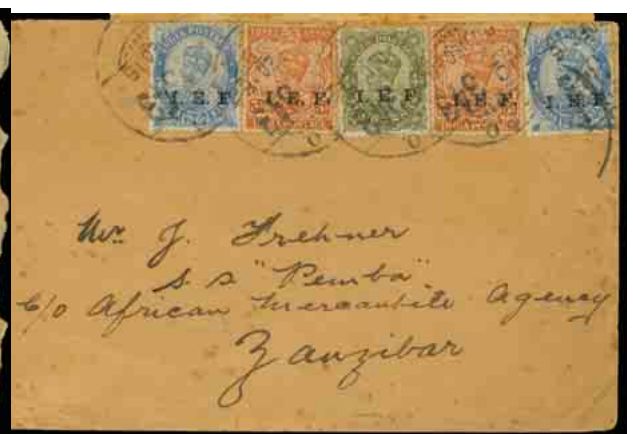 I. E. F. I. E. F. I. E. F. I. E. F. I. E. F.
Mr. J. Frehner
S S "Pemba"
c/o African Mercantile Agency
Zanzibar